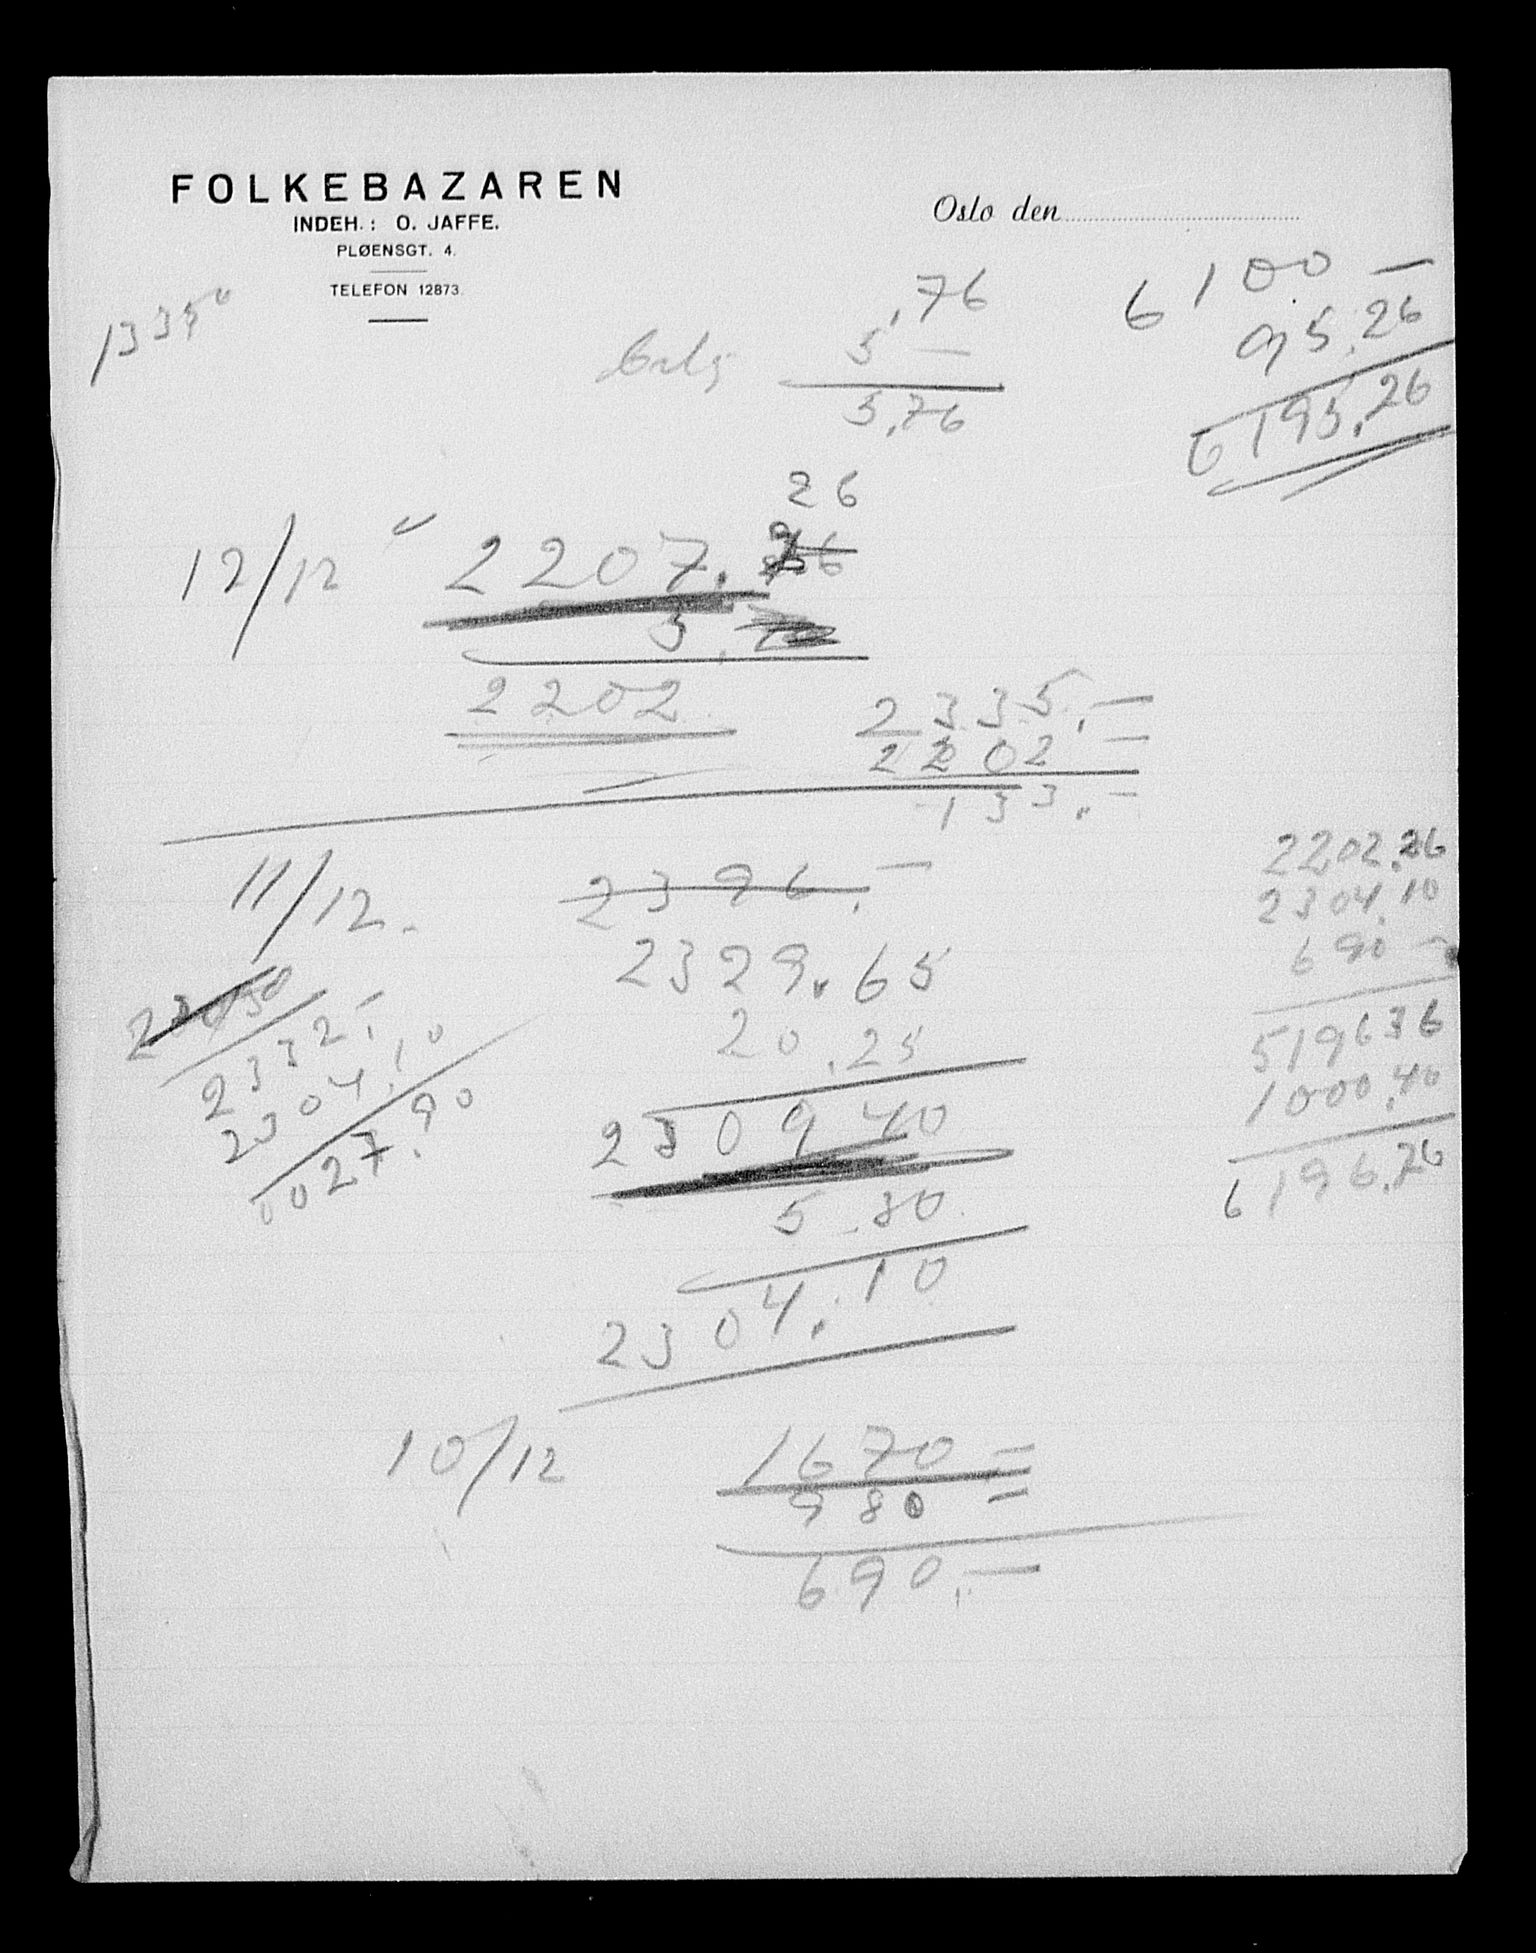 FOLKEBAZAREN
INDEH.: O. JAFFE.
PLØENSGT. 4.
TELEFON 12873.
Oslo den
,76
5 —
5,76
6100 —
95.26
6195.26
26
12/12 2207.
5
2202
2335.—
2202 —
133.—
11/12. 2396.—
2329.65
20.25
230940
5.30
2304.10
2332.-
2304.10
0027.90
2202.26
2304.10
690 -
519636
1000.40
6196.76
10/12 1670 =
980 =
690.—